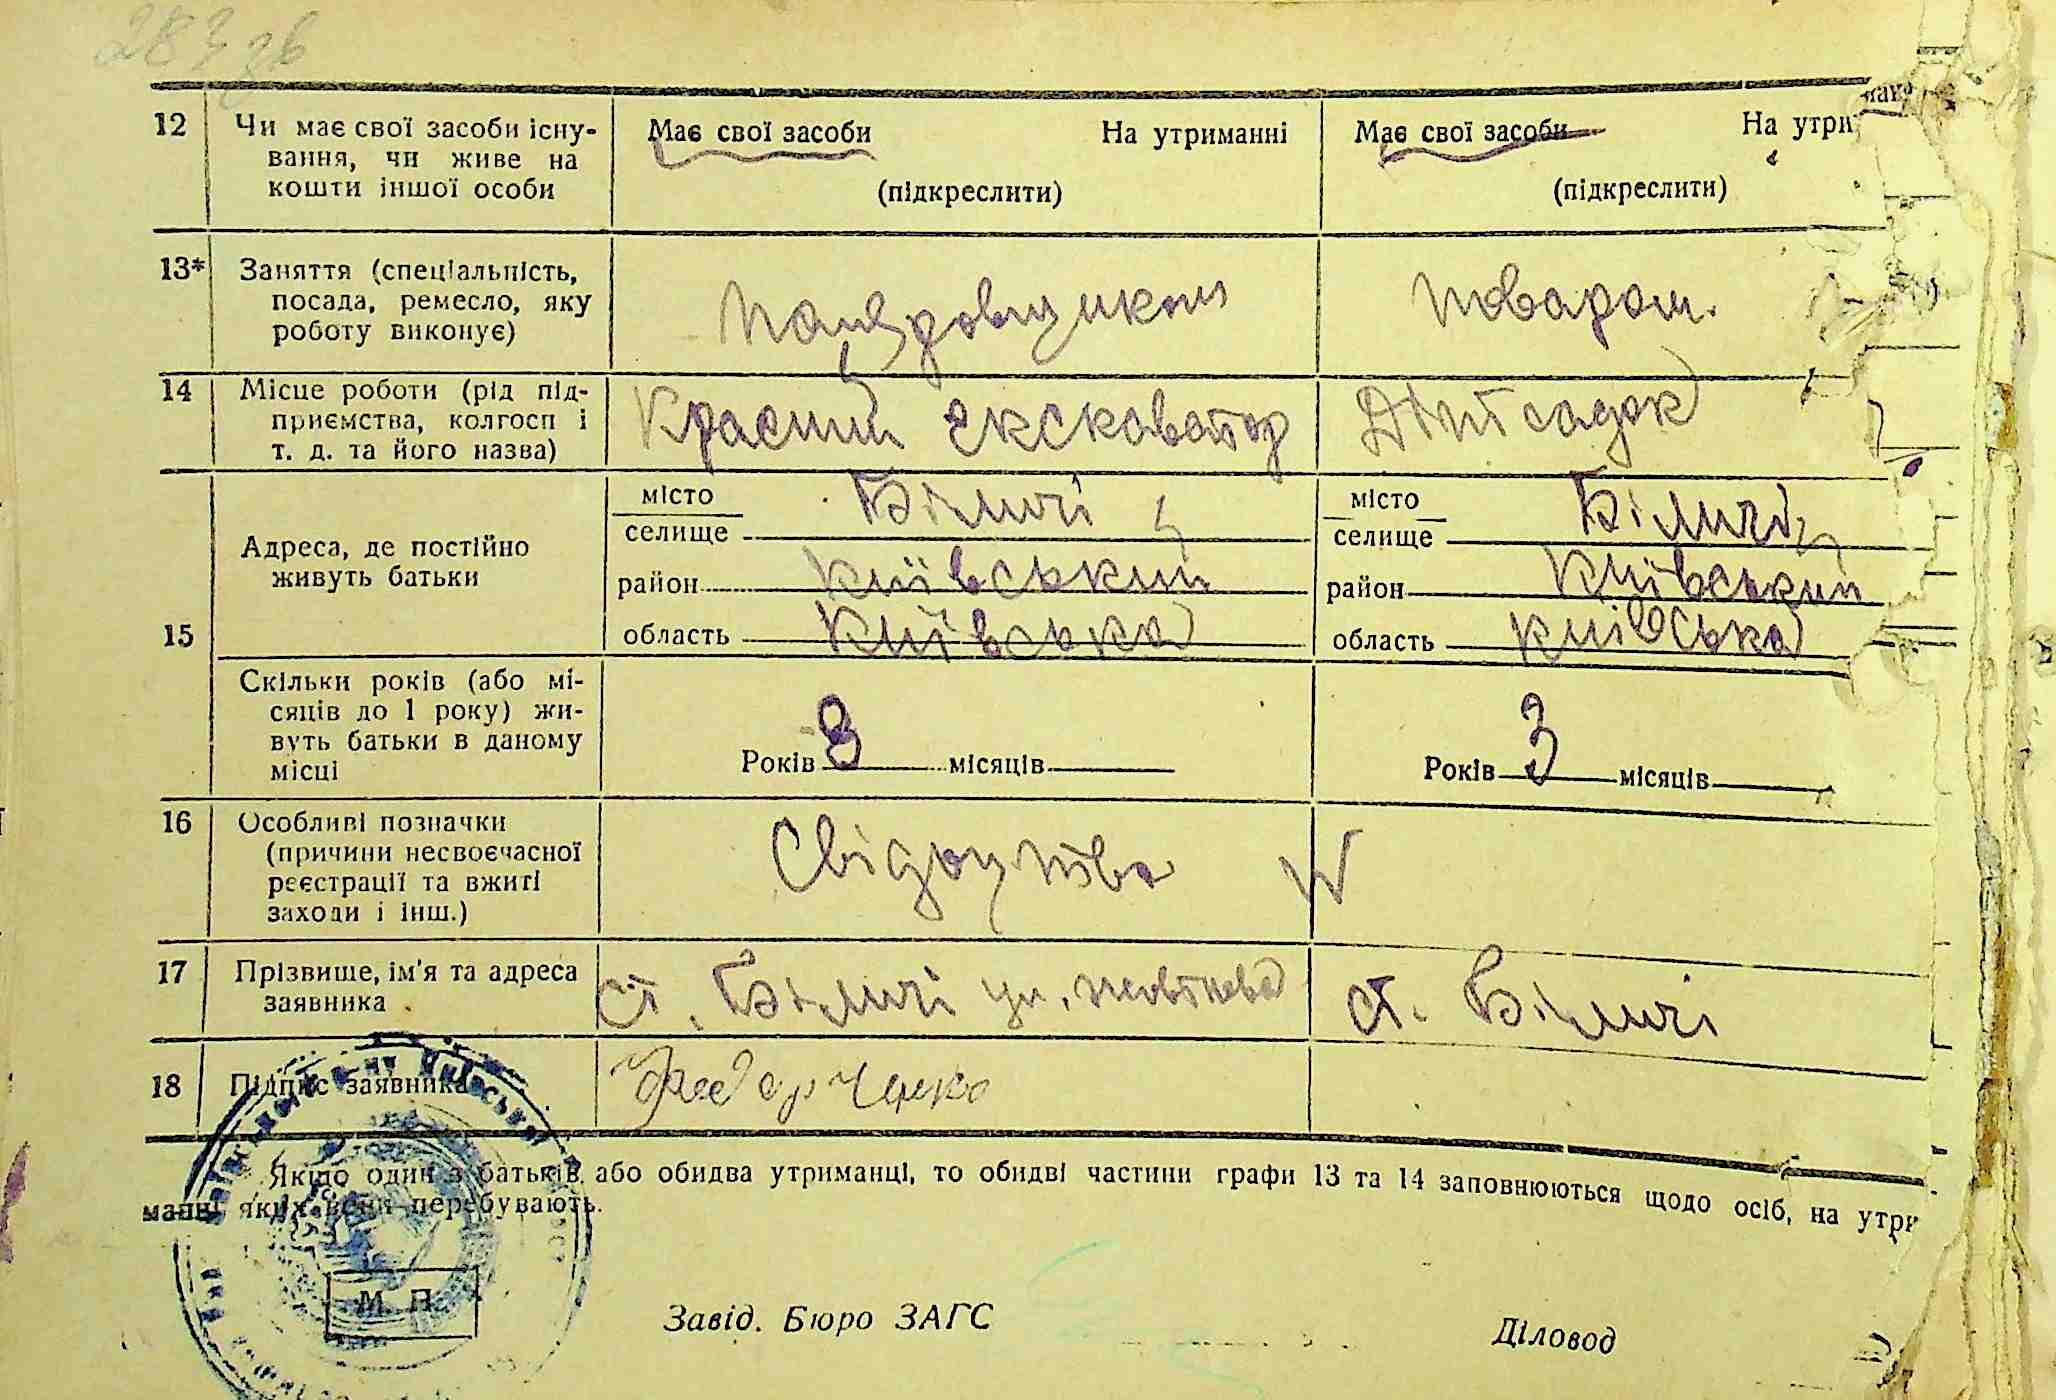 283 зв
12 Чи має свої засоби існу- Має свої засоби На утриманні Має свої засоби На утри
вання, чи живе на
кошти іншої особи (підкреслити) (підкреслити)
13* Заняття (спеціальність, поваром.
посада, ремесло, яку
роботу виконує)
14 Місце роботи (рід під- Красний екскаватор Дітсадок
приємства, колгосп і
т. д. та його назва)
місто Біличі місто Біличі
селище селище
Адреса, де постійно
живуть батьки район Київський район Київський
15 область Київська область Київська
Скільки років (або мі-
сяців до 1 року) жи-
вуть батьки в даному Років 8 місяців Років 3 місяців
місці
16 Особливі позначки Свідоцтво
(причини несвоєчасної
реєстрації та вжиті
заходи і інш.)
17 Прізвище, ім'я та адреса ст. Біличі ул. Жовтнева ст. Біличі
заявника
18 Підпис заявника Федорченко
Якщо один з батьків або обидва утриманці, то обидві частини графи 13 та 14 заповнюються щодо осіб, на утри
манні яких вони перебувають.
М. П.
Завід. Бюро ЗАГС Діловод